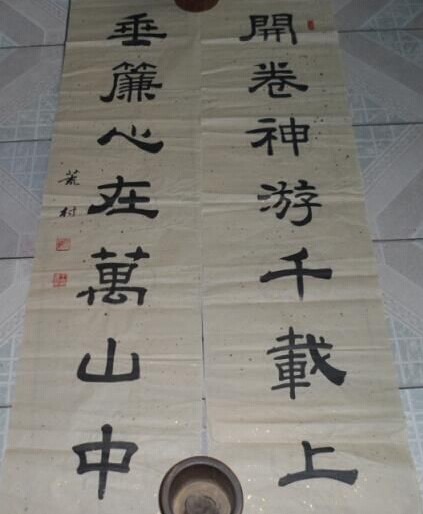 開卷神游千載上
垂簾心在萬山中
荒村